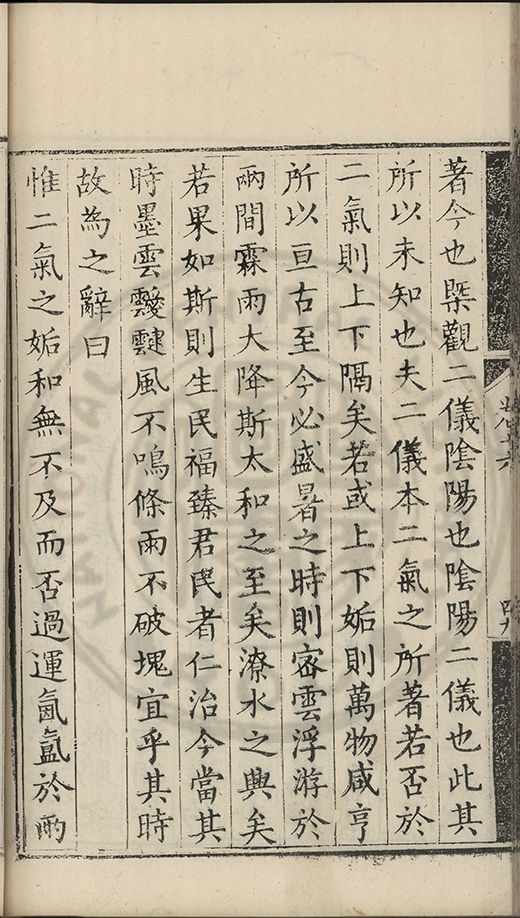 著今也槩觀二儀陰陽也陰陽二儀也此其
所以未知也夫二儀本二氣之所著若否於
二氣則上下隔矣若或上下姤則萬物咸亨
所以亘古至今必盛暑之時則密雲浮游於
兩間霖雨大降斯太和之至矣潦水之興矣
若果如斯則生民福臻君民者仁治今當其
時墨雲靉靆風不鳴條雨不破塊宜乎其時
故為之辭曰
惟二氣之姤和無不及而否過運氤氳於兩